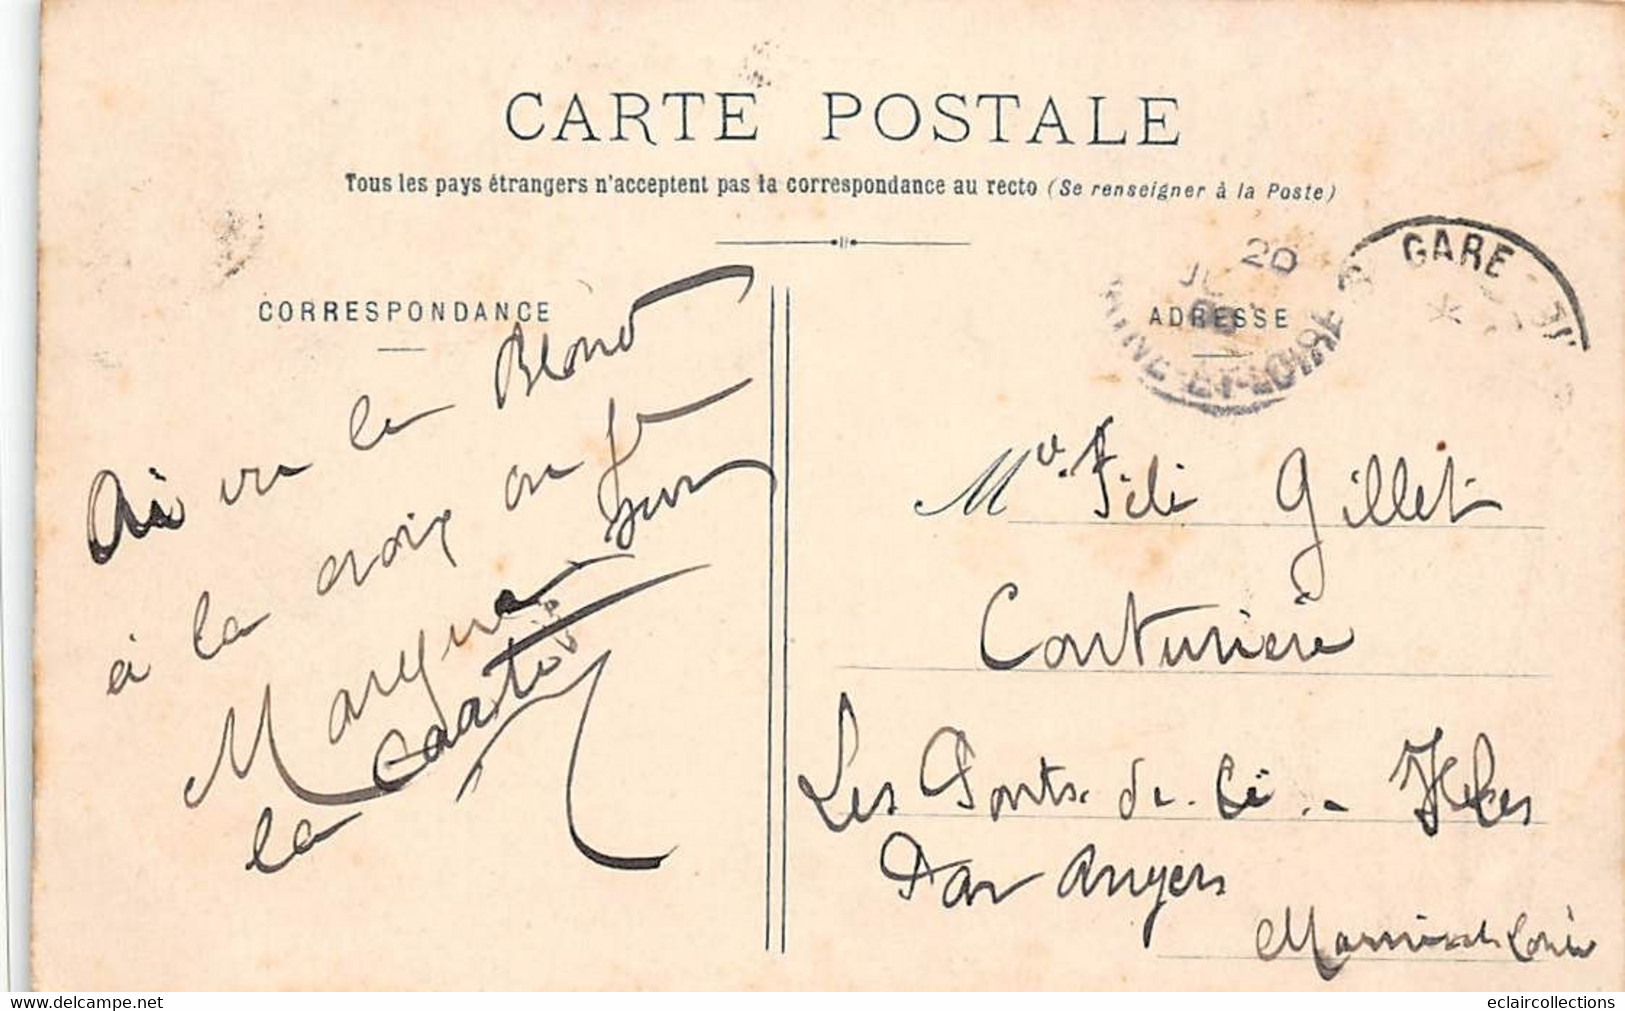 CARTE POSTALE
Tous les pays étrangers n'acceptent pas la correspondance au recto (Se renseigner à la Poste)
CORRESPONDANCE
ADRESSE
20
GARE
MAINE-ET-LOIRE
Ai vu le Blond
à la croix on
la
Gillet
Couturière
Les Ponts-de-Cé -
Par Angers
Maine et Loire
eclaircollections